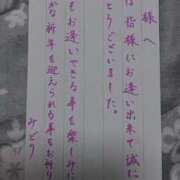 様へ
は皆様にお逢い出来て誠に
とうございました。
もお逢いできる事を楽しみに
かな新年を迎えられる事をお祈り
みどり